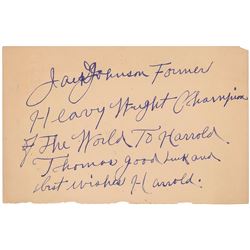 Jack Johnson Former
Heavy Wright Champion
of The World To Harrold.
Thomas good luck and
best wishes Harrold.